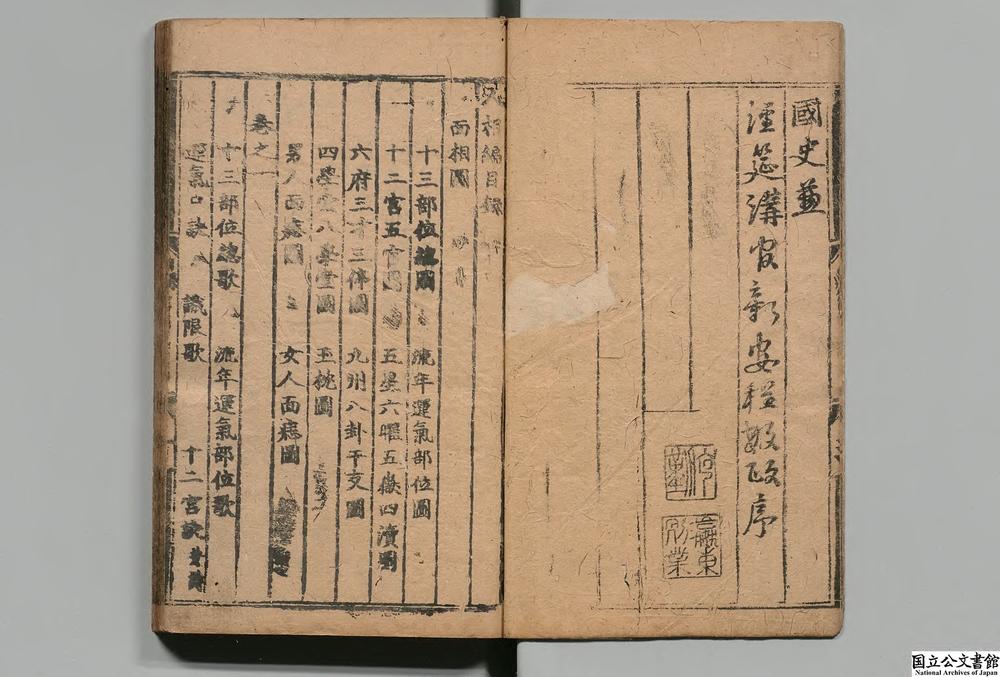 國史並
經筵講官新安程敏政序
瀛東
別業
人相編目錄
面相圖
十三部位總圖 流年運氣部位圖
十二宮五官圖 五星六曜五嶽四瀆圖
六府三才三停圖 九州八卦干支圖
四學堂八學堂圖 玉枕圖
男人面痣圖 女人面痣圖
卷之一
十三部位總歌 流年運氣部位歌
運氣口訣 識限歌 十二宮訣
国立公文書館
National Archives of Japan